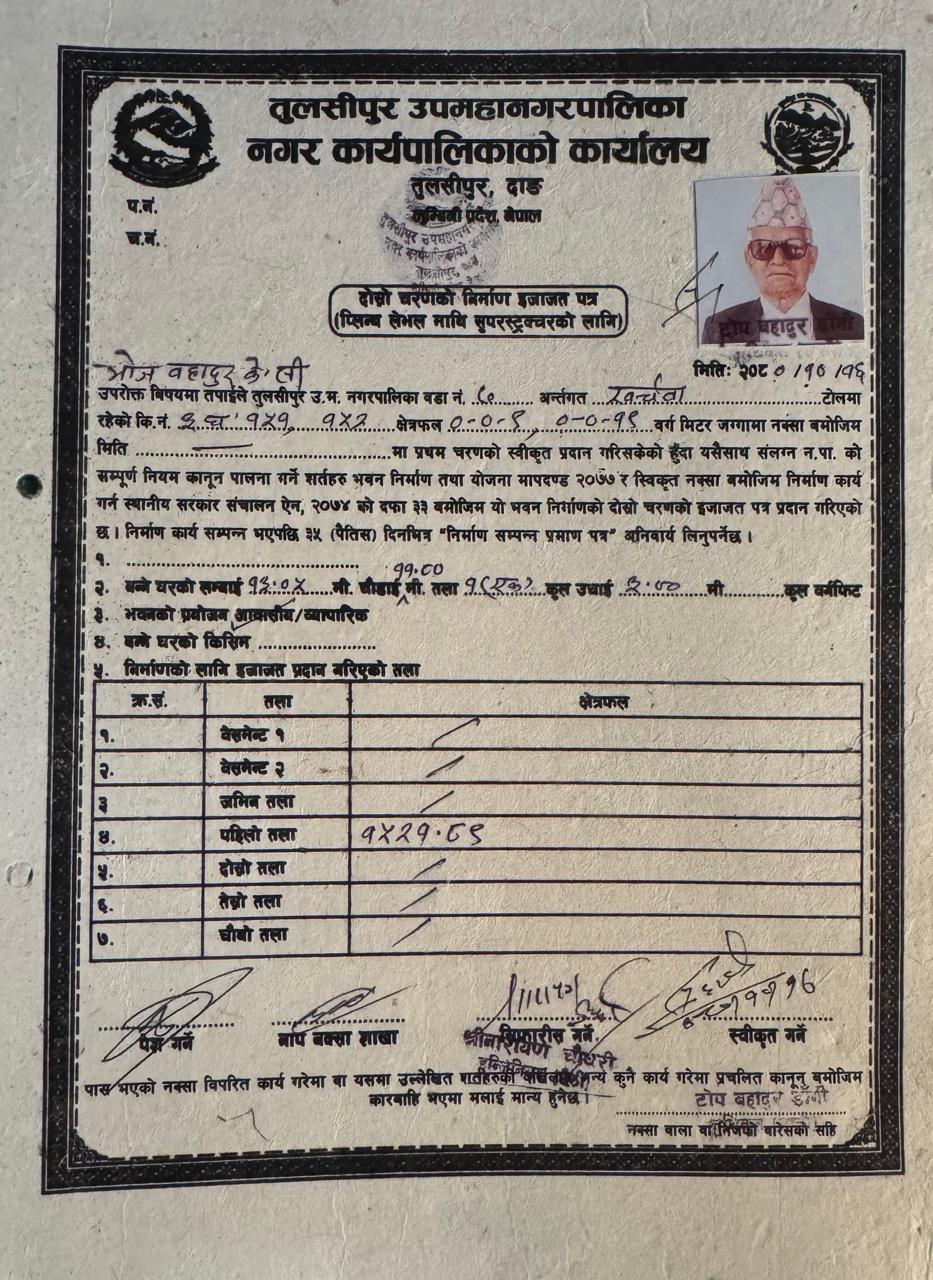 तुलसीपुर उपमहानगरपालिका
नगर कार्यपालिकाको कार्यालय
तुलसीपुर, दाङ
लुम्बिनी प्रदेश, नेपाल
प.नं.
च.नं.
दोस्रो चरणको निर्माण इजाजत पत्र
(प्लिन्थ लेभल माथि सुपरस्ट्रक्चरको लागि)
टोप बहादुर डाँगी
मितिः २०८०/१०/१६
भोज बहादुर के सी
उपरोक्त बिषयमा तपाईले तुलसीपुर उ.म. नगरपालिका वडा नं. अन्तर्गत टोलमा
रहेको कि.नं. १५१, १५२ क्षेत्रफल ०-०-९, ०-०-१९ वर्ग मिटर जग्गामा नक्सा बमोजिम
मिति मा प्रथम चरणको स्वीकृत प्रदान गरिसकेको हुँदा यसैसाथ संलग्न न.पा. को
सम्पूर्ण नियम कानून पालना गर्ने शर्तहरु भवन निर्माण तथा योजना मापदण्ड २०७७ र स्विकृत नक्सा बमोजिम निर्माण कार्य
गर्न स्थानीय सरकार संचालन ऐन, २०७४ को दफा ३३ बमोजिम यो भवन निर्माणको दोस्रो चरणको इजाजत पत्र प्रदान गरिएको
छ। निर्माण कार्य सम्पन्न भएपछि ३५ (पैतिस) दिनभित्र "निर्माण सम्पन्न प्रमाण पत्र" अनिवार्य लिनुपर्नेछ।
१.
११.००
२. बन्ने घरको लम्बाई १३.०५ मी. चौडाई मी. तला १(एक) कूल उचाई ३.०० मी कूल वर्गफिट
३. भवनको प्रयोजन आवासीय/व्यापारिक
४. बन्ने घरको किसिम
५. निर्माणको लागि इजाजत प्रदान गरिएको तला
क्र.सं. तला क्षेत्रफल
१. वेसमेन्ट १
२. वेसमेन्ट २
३ जमिन तला
४. पहिलो तला १५२१.८९
५. दोस्रो तला
६. तेस्रो तला
७. चौथो तला
पेश गर्ने नाप नक्सा शाखा सिफारीस गर्ने स्वीकृत गर्ने
श्रीनारायण चौधरी
पास भएको नक्सा विपरित कार्य गरेमा वा यसमा उल्लेखित शर्तहरुको अन्य कुनै कार्य गरेमा प्रचलित कानून बमोजिम
कारबाहि भएमा मलाई मान्य हुनेछ।
टोप बहादुर डाँगी
नक्सा वाला वा निजको वारेसको सहि